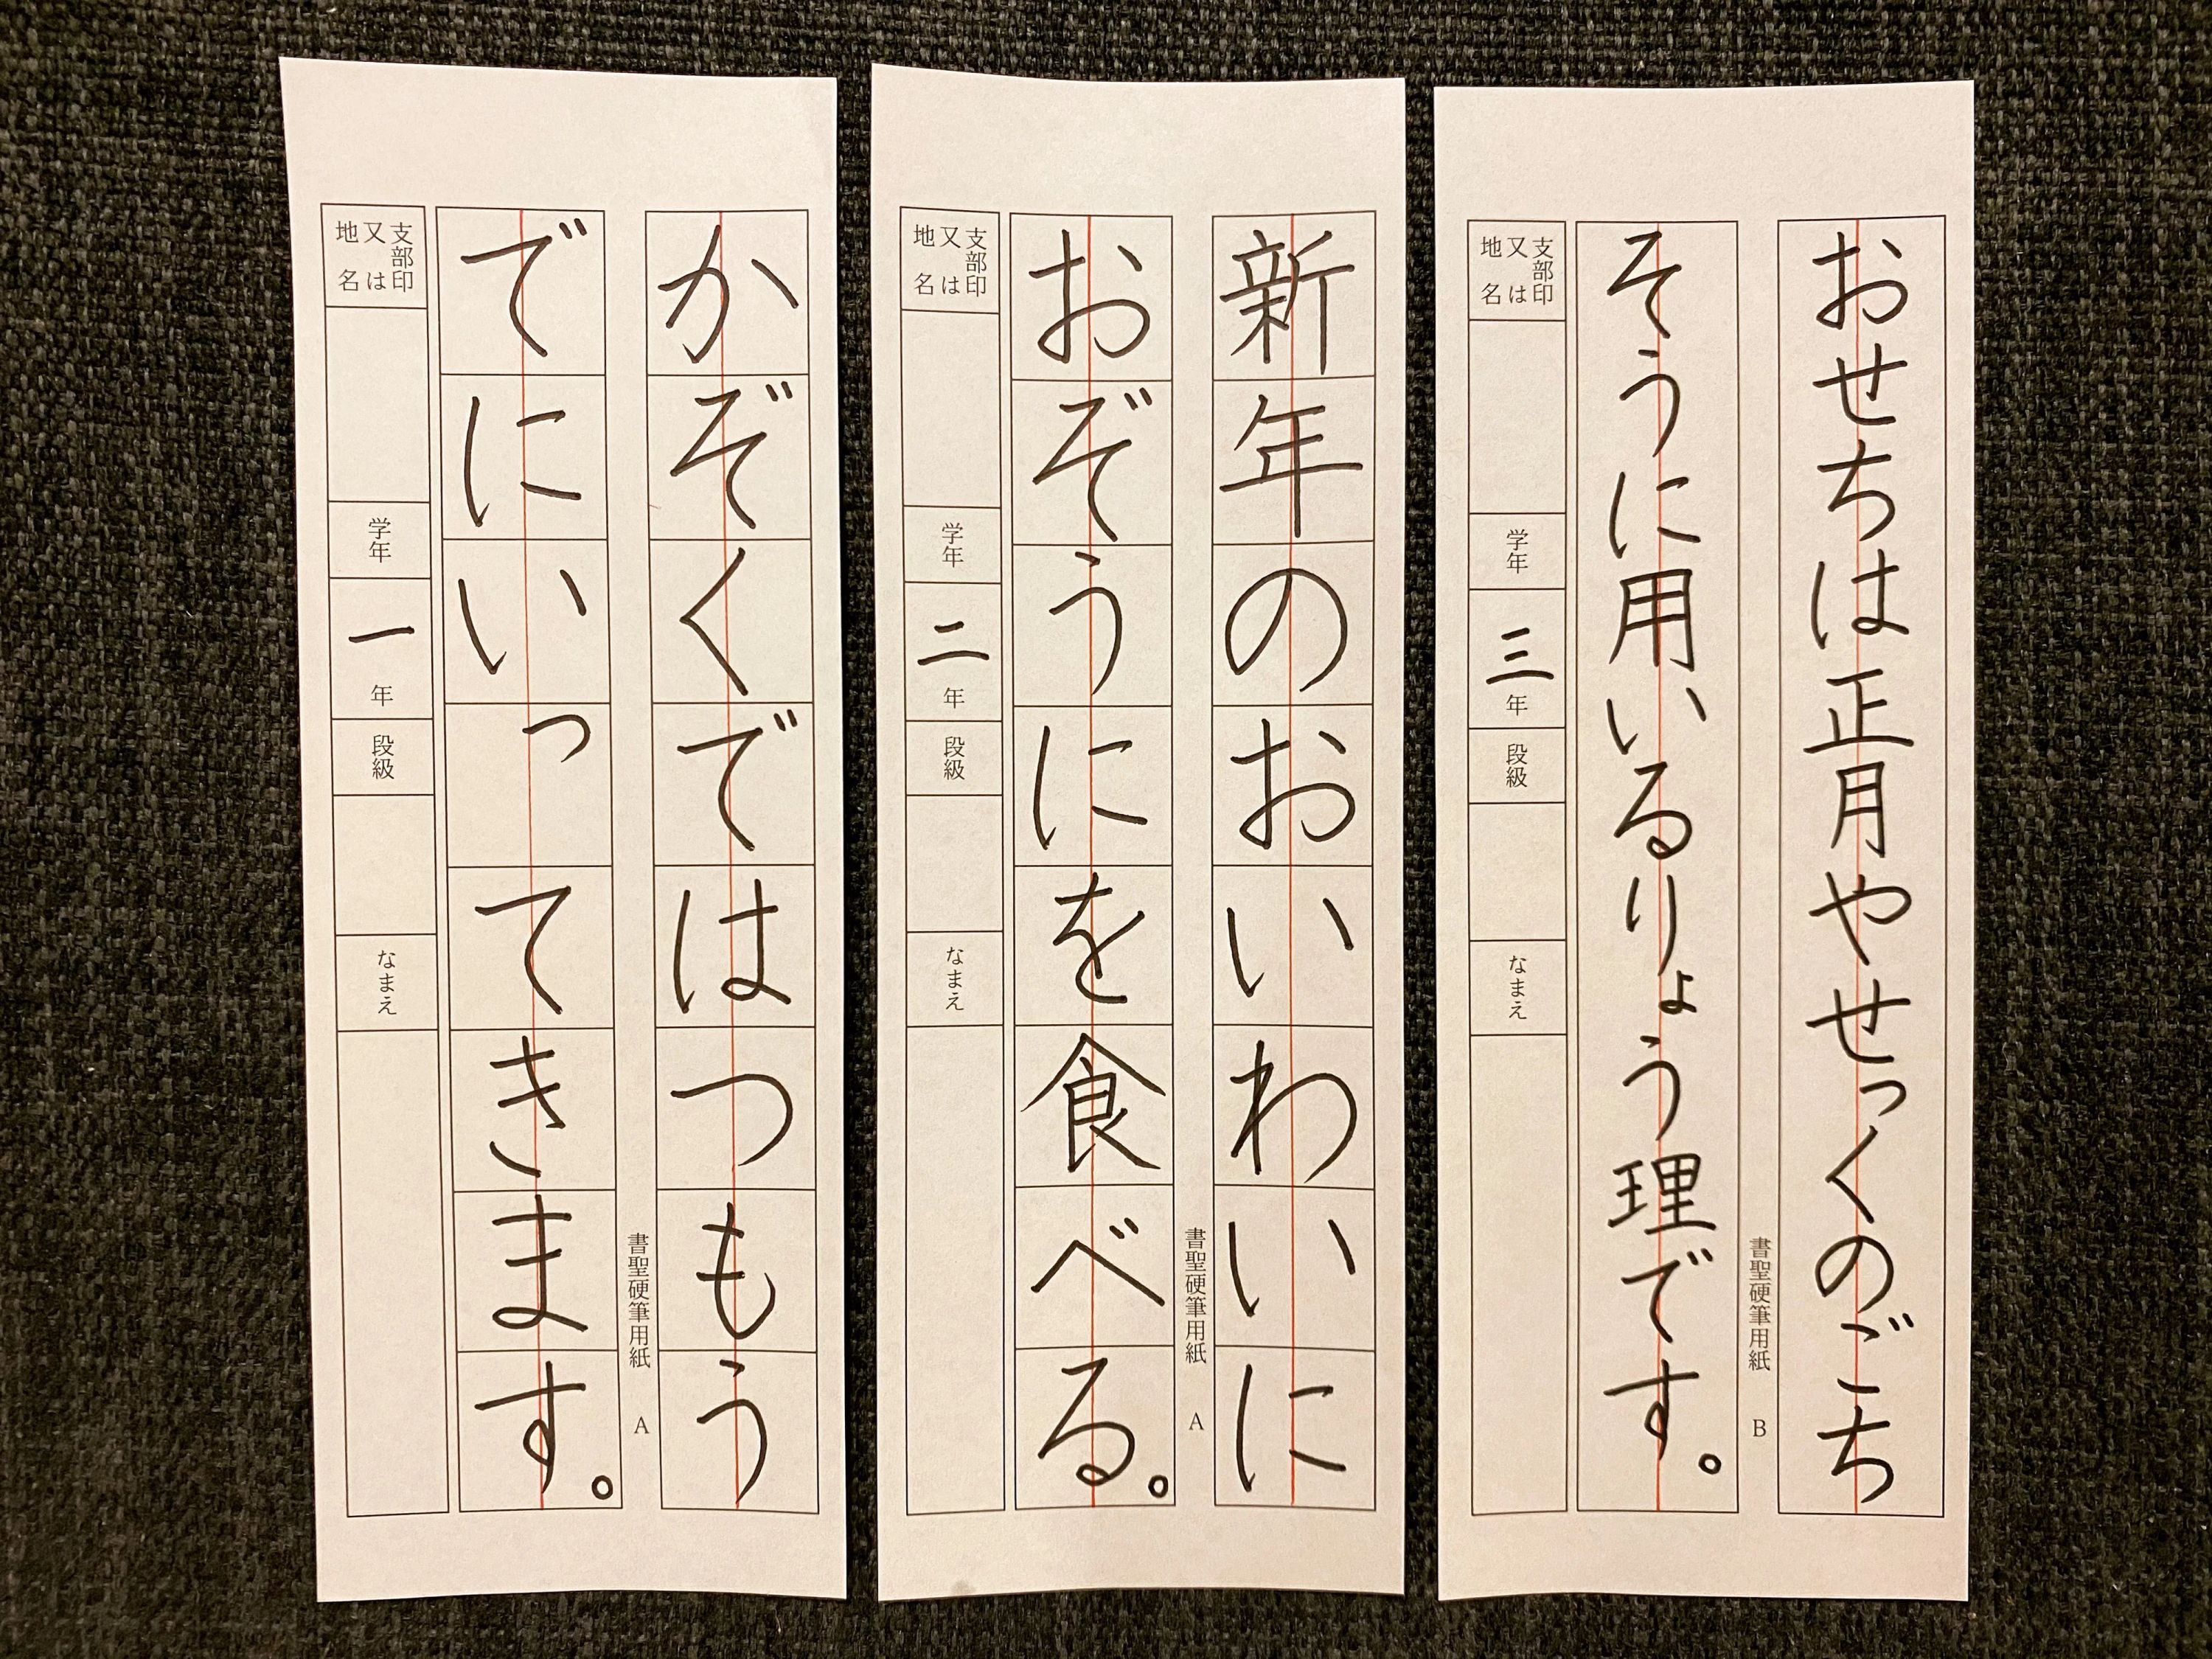 おせちは正月やせっくのごち
そうに用いるりょう理です。
書聖硬筆用紙 B
支部印
又は
地名
学年
三年
段級
なまえ
新年のおいわいに
おぞうにを食べる。
書聖硬筆用紙 A
支部印
又は
地名
学年
二年
段級
なまえ
かぞくではつもう
でにいってきます。
書聖硬筆用紙 A
支部印
又は
地名
学年
一年
段級
なまえ